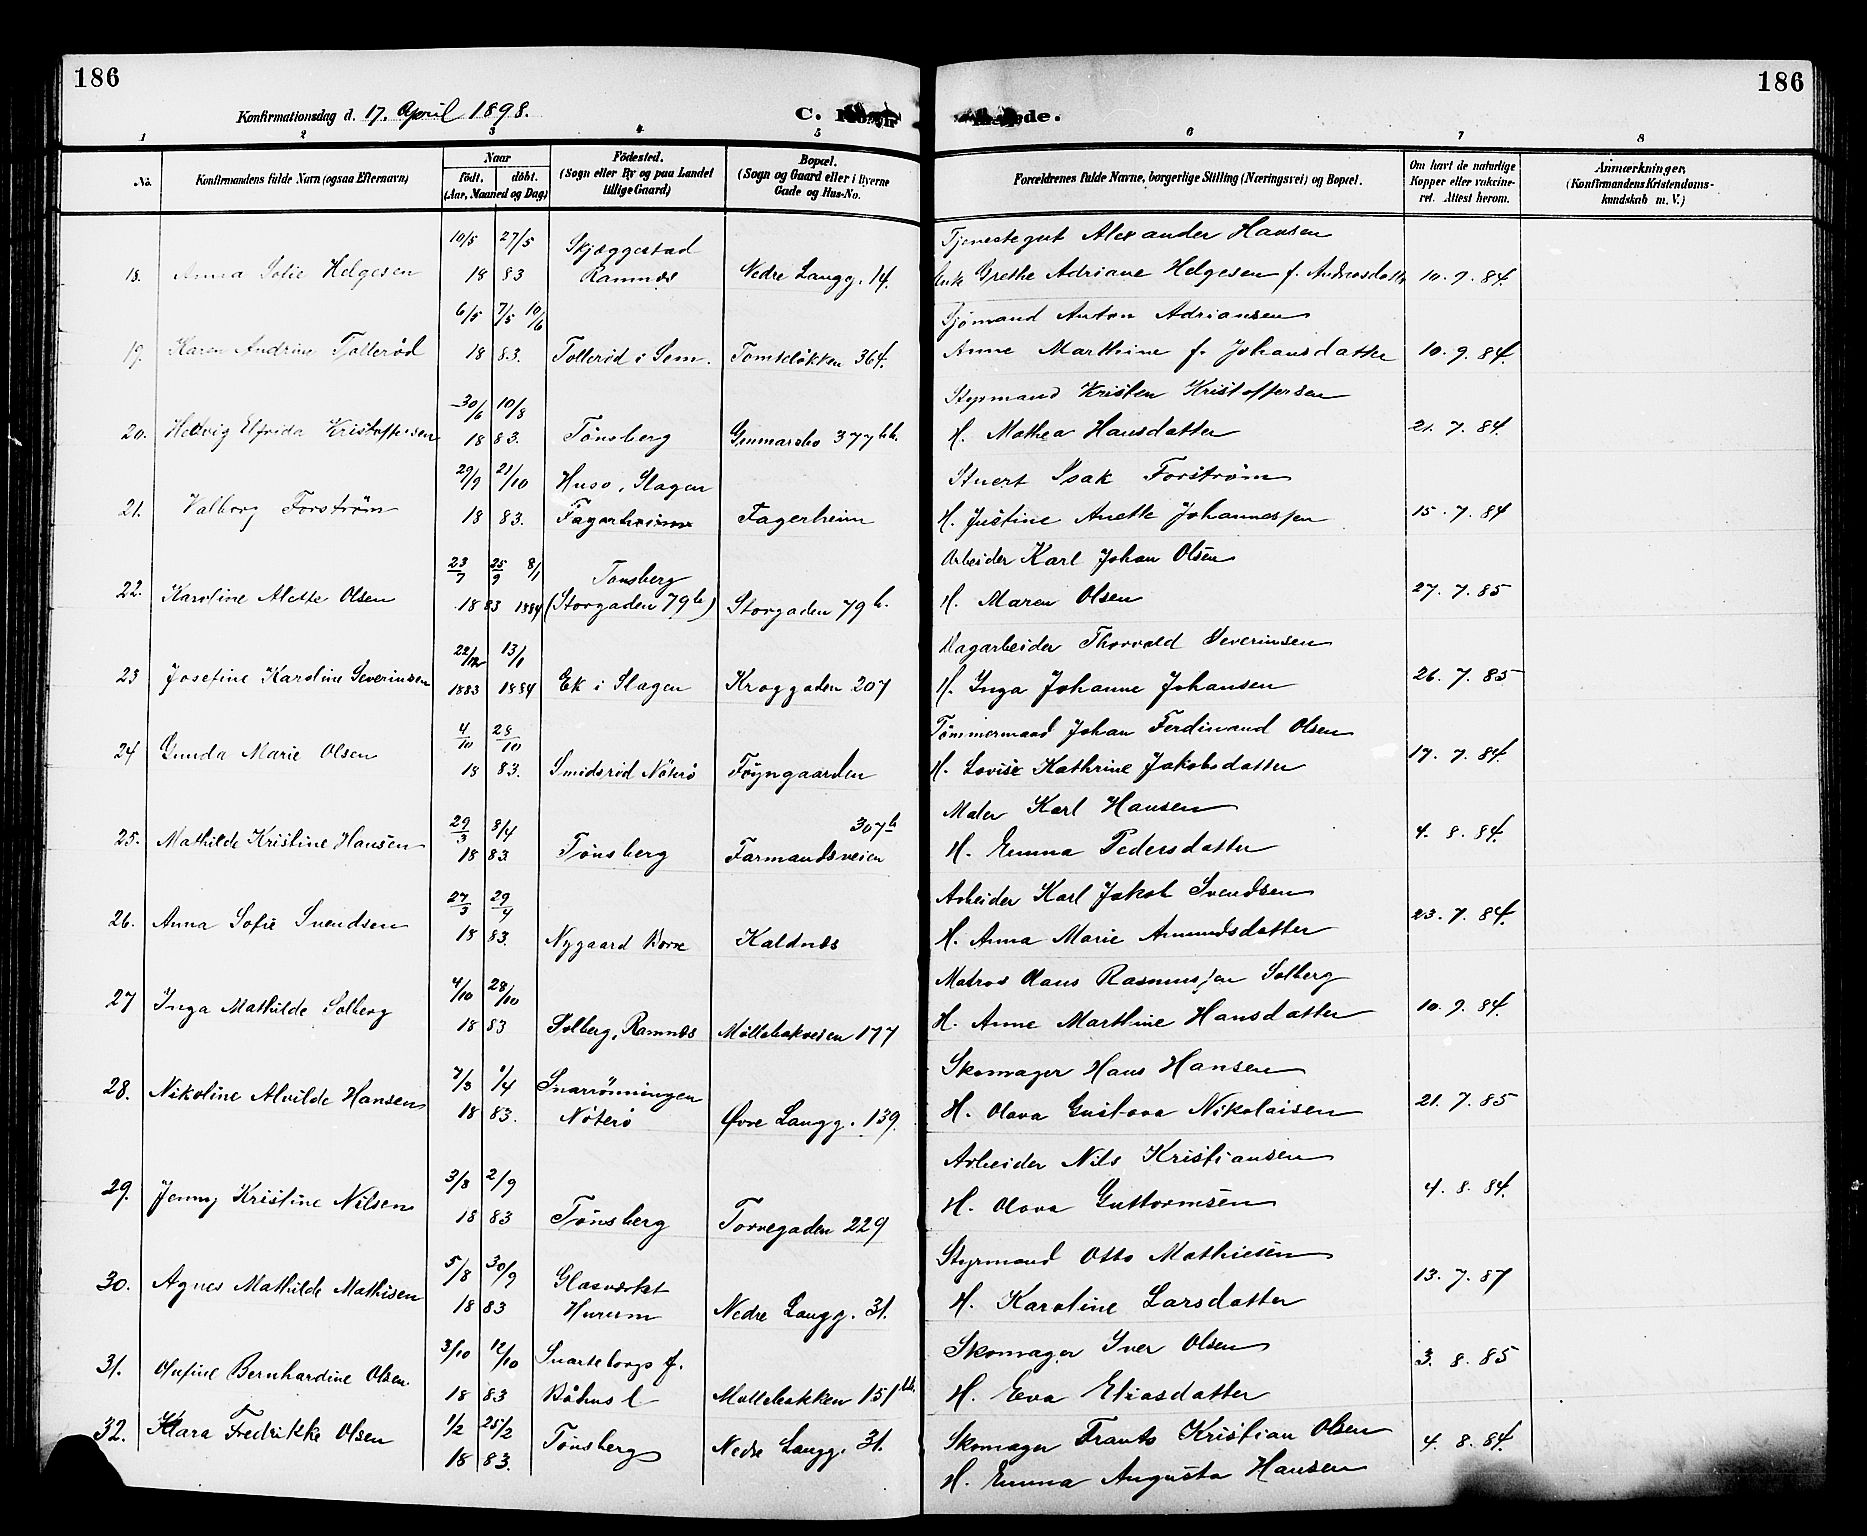 186
186
Konfirmationsdag d. 17. April 1898.
C.
1 2 3 4 5 6 7 8
No.
Konfirmandens fulde Navn (ogsaa Efternavn)
Naar
födt, döbt.
(Aar, Maaned og Dag)
Födested.
(Sogn eller By og paa Landet
tillige Gaard)
Bopæl.
(Sogn og Gaard eller i Byerne
Gade og Hus-No.
Forældrenes fulde Navne, borgerlige Stilling (Næringsvei) og Bopæl.
Om havt de naturlige
Kopper eller vakcine-
ret. Attest herom.
Anmærkninger,
(Konfirmandens Kristendoms-
kundskab m. V.)
10/5 27/5 Skjæggestad Tjenestegut Alexander Hansen
18. Anna Sofie Helgesen 18 83 Ramnæs Nedre Langg. 14. Enk Grethe Adriane Helgesen f. Andreasdatter 10. 9. 84.
6/5 7/5 10/6 Sjömand Anton Adriansen
19. Karen Andrine Tolleröd 18 83. Tolleröd i Sem. Tomtelökken 364. Anne Marthine f. Johansdatter 10. 9. 84.
30/6 10/8 Styrmand Kristen Kristoffersen
20. Hedvig Elfrida Kristoffersen 18 83. Tönsberg 377 bb. H. Mathea Hansdatter 21. 7. 84.
29/9 21/10 Huso, Slagen Stuert Isak Forström
21. Valborg Forström 18 83. Fagerheim Fagerheim H. Justine Anette Johannessen 15. 7. 84
23/7 25/9 8/1 Tönsberg Arbeider Karl Johan Olsen
22. Karoline Alette Olsen 18 83 1884 (Storgaden 79 b) Storgaden 79 b. H. Maren Olsen 27. 7. 85
22/12 13/1 Dagarbeider Thorvald Severinsen
23 Josefine Karoline Severinsen 1883 1884 Ek i Slagen Kroggaden 207 H. Inga Johanne Johansen 26. 7. 85
4/10 28/10 Tömmermand Johan Ferdinand Olsen
24 Gunda Marie Olsen 18 83. Smidsröd Nöterö Föyngaarden H. Lovise Kathrine Jakobsdatter 17. 7. 84.
29/3 8/4 307 b Maler Karl Hansen
25. Mathilde Kristine Hansen 18 83 Tönsberg Farmandsveien H. Emma Pedersdatter 4. 8. 84.
27/3 29/4 Arbeider Karl Jakob Svendsen
26. Anna Sofie Svendsen 18 83. Nygaard Borre Kaldnæs H. Anna Marie Amundsdatter 23. 7. 84.
4/10 28/10 Matros Claus Rasmussen Solberg
27 Inga Mathilde Solberg 18 83 Solberg, Ramnæs Möllebakveien 177 H. Anne Marthine Hansdatter 10. 9. 84.
7/3 1/4 Snarrönningen Skomager Hans Hansen
28. Nikoline Alvilde Hansen 18 83. Nöterö Övre Langg. 139. H. Olava Gustava Nikolaisen 21. 7. 85
3/8 2/9 Arbeider Nils Kristiansen
29. Jenny Kristine Nilsen 18 83 Tönsberg Torvegaden 229 H. Olava Guttormsen 4. 8. 84.
5/8 30/9 Glasværket Styrmand Otto Mathiesen
30. Agnes Mathilde Mathisen 18 83 Hurum Nedre Langg. 31. H. Karoline Larsdatter 13. 7. 87
3/10 12/10 Svarteborgs f. Skomager Iver Olsen
31. Bernhardine Olsen. 18 83 Båhus l Mollebakken 151 bb. H. Eva Eliasdatter 3. 8. 85
1/2 25/2 Skomager Frants Kristian Olsen
32. Klara Fredrikke Olsen 18 83. Tönsberg Nedre Langg. 31. H. Emma Augusta Hansen 4. 8. 84.